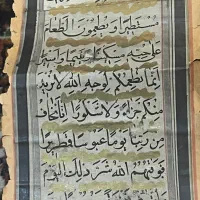 مستطيرا ويطعمون الطعام
على حبه مسكينا ويتيما واسيرا
انما نطعمكم لوجه الله لا نريد
منكم جزاء ولا شكورا انا نخاف
من ربنا يوما عبوسا قمطريرا
فوقيهم الله شر ذلك اليوم